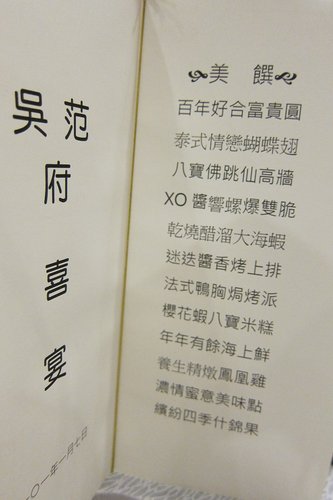 吳范府喜宴
一〇一年一月七日
美饌
百年好合富貴圓
泰式情戀蝴蝶翅
八寶佛跳仙高牆
XO醬響螺爆雙脆
乾燒醋溜大海蝦
迷迭醬香烤上排
法式鴨胸焗烤派
櫻花蝦八寶米糕
年年有餘海上鮮
養生精燉鳳凰雞
濃情蜜意美味點
繽紛四季什錦果